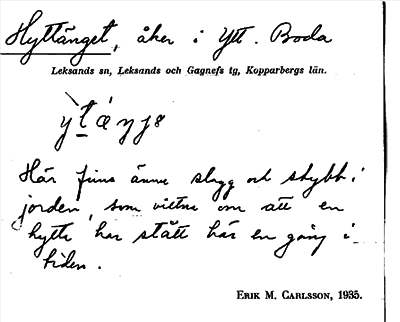 Hyttänget, åker i Ytt. Boda
Leksands sn, Leksands och Gagnefs tg, Kopparbergs län.
Här finns ännu slagg och skybb i
jorden, som vittna om att en
hytta har stått här en gång i
tiden.
ERIK M. CARLSSON, 1935.